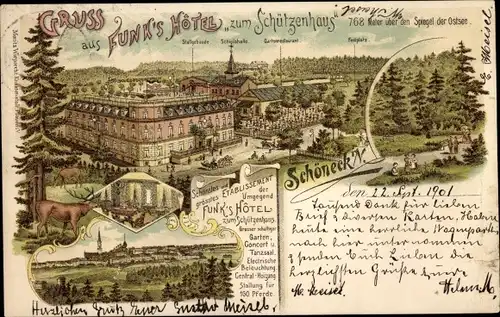 GRUSS
aus FUNK'S HÔTEL "zum Schützenhaus"
768 Meter über den Spiegel der Ostsee.
Stallgebäude Schiesshalle Gartenrestaurant Festplatz
Schöneck i/V.
Schönstes u.
grösstes ETABLISSEMENT
der Umgegend
FUNK'S HÔTEL
zum Schützenhaus.
Grosser schattiger
Garten,
Concert u.
Tanzsaal.
Electrische
Beleuchtung.
Central-Heizung
Stallung für
100 Pferde.
den 22. Sept. 1901
Tausend Dank für lieben
Brief & diversen Karten, Haben
heute eine herrliche Wagenpartie
nach hier unternommen
& senden Euch Lieben die
herzlichsten Grüße
M. Meisel.
Herzlichen Gruß Euer Gustav Meisel.
E. Meisel